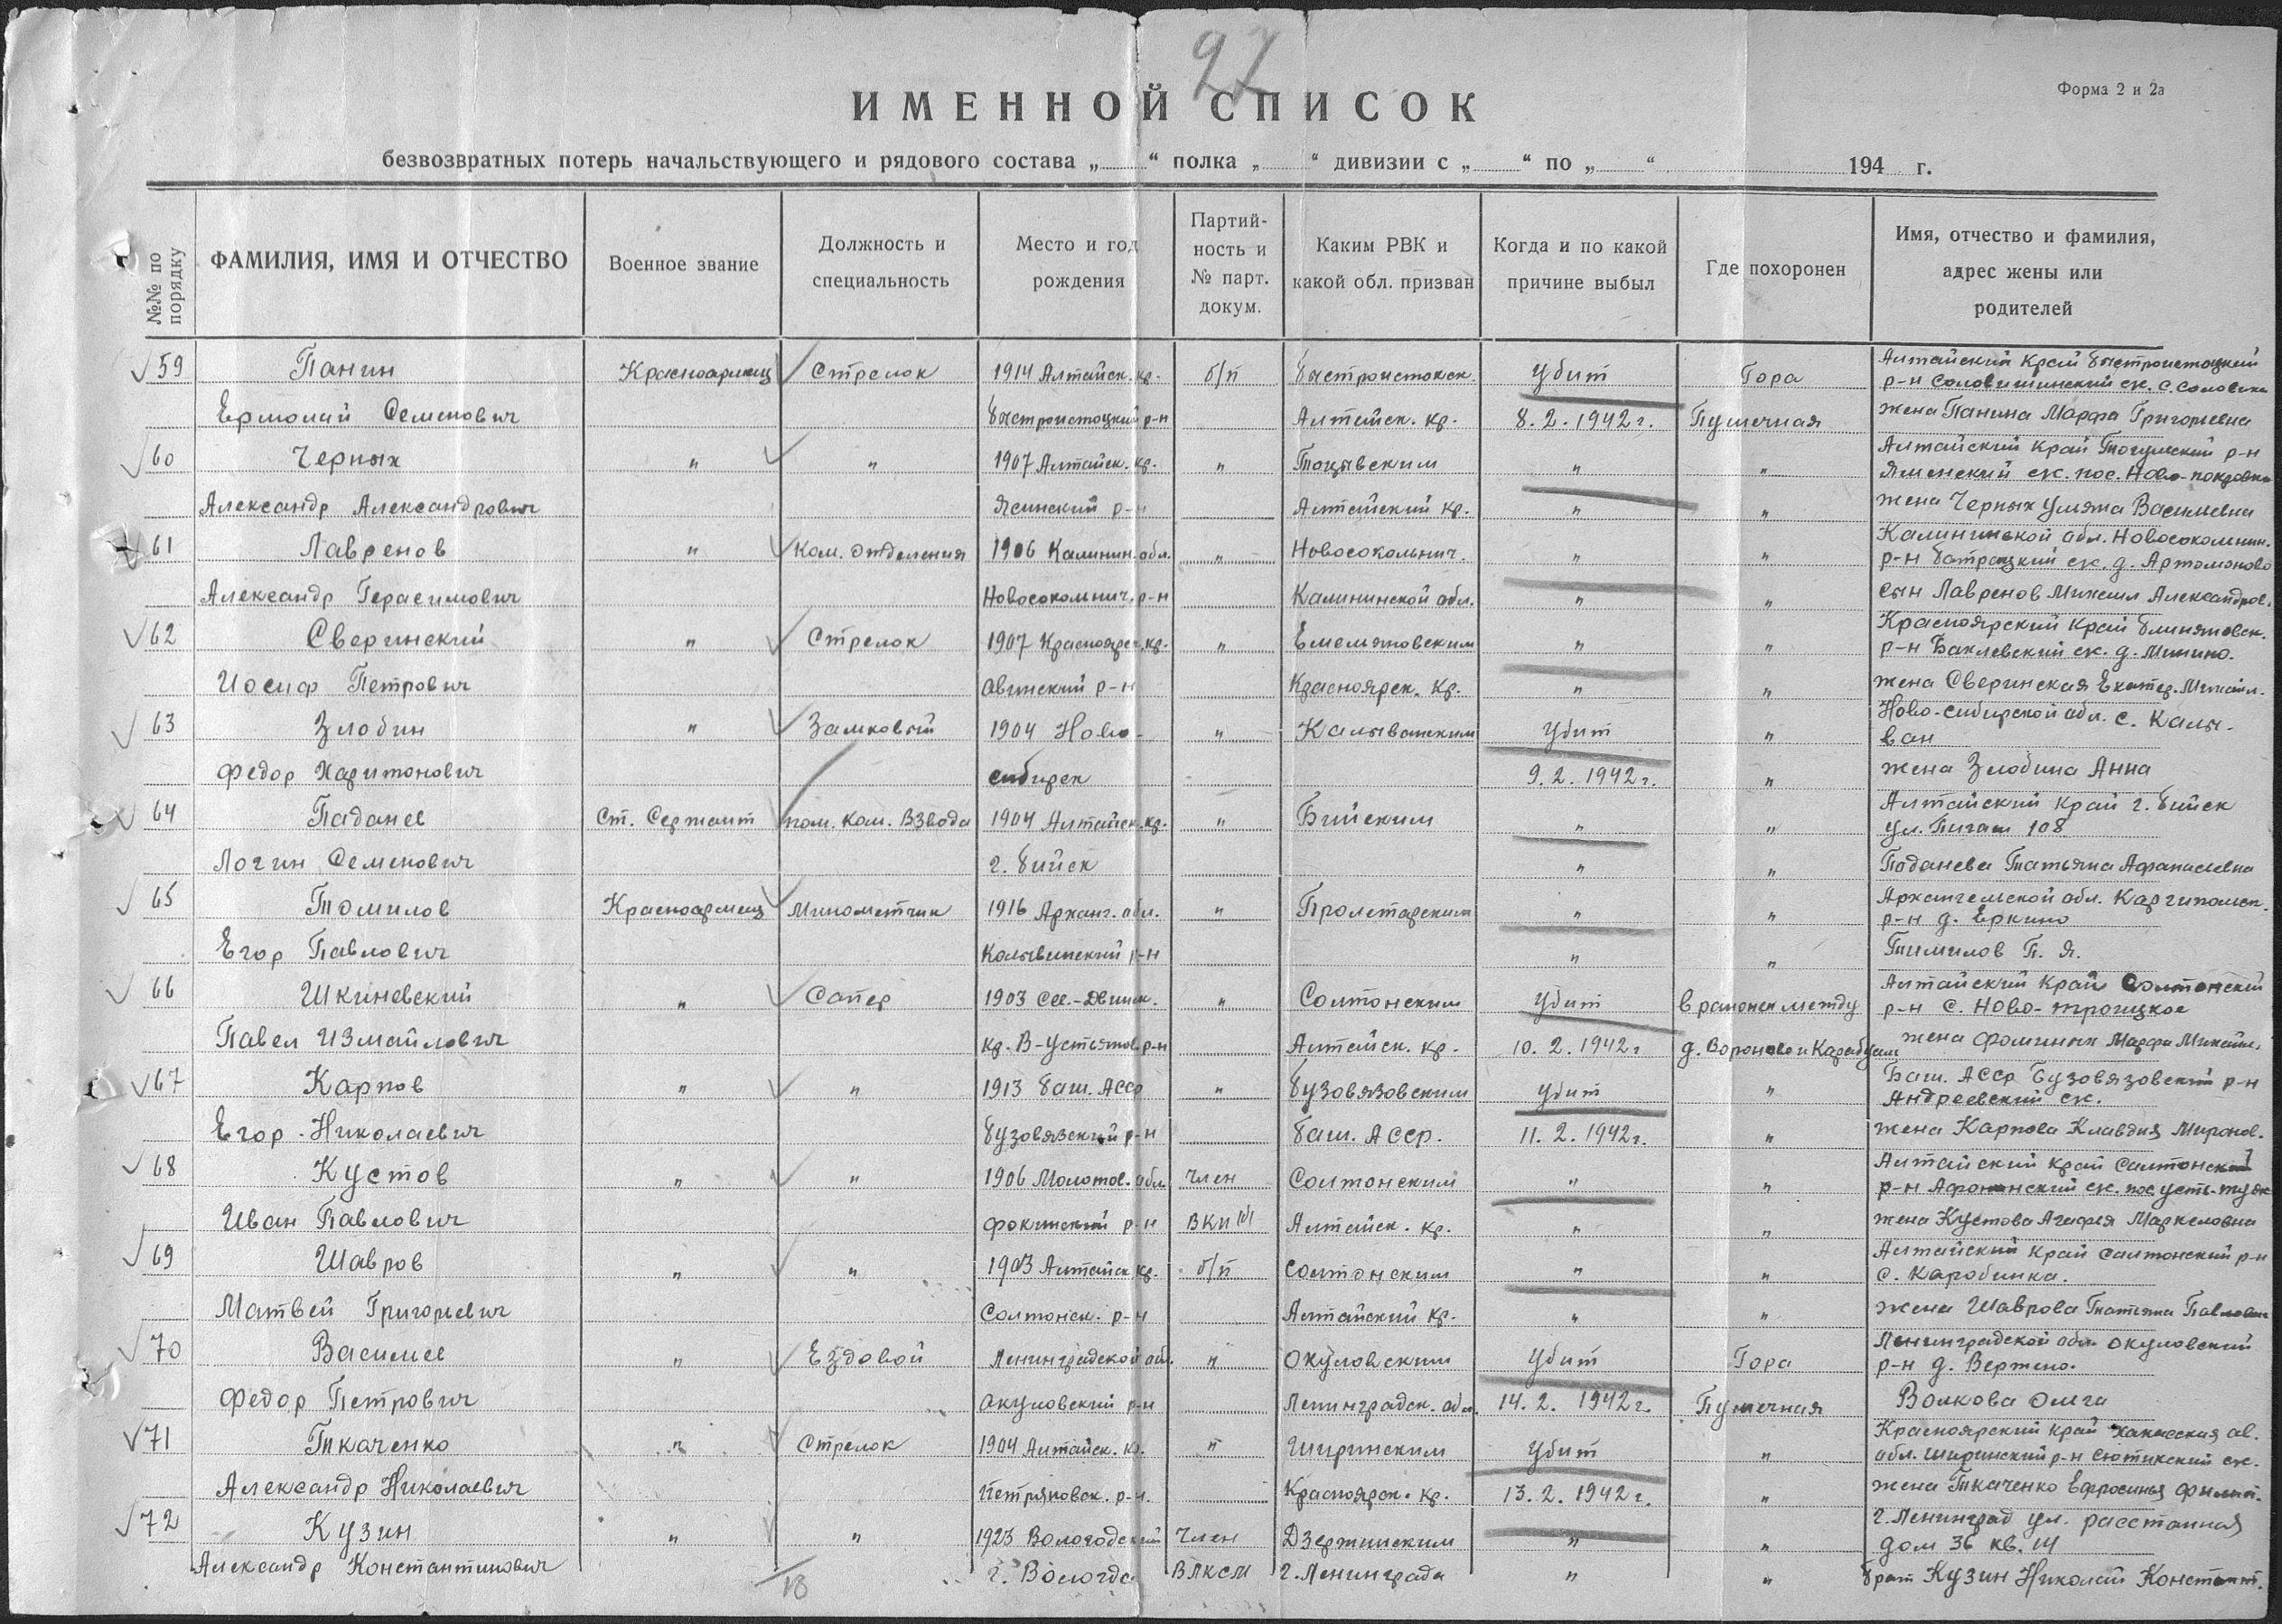 92
Форма 2 и 2а
ИМЕННОЙ СПИСОК
безвозвратных потерь начальствующего и рядового состава „ “ полка „ “ дивизии с „ “ по „ “ 194 г.
№№ по порядку
ФАМИЛИЯ, ИМЯ И ОТЧЕСТВО
Военное звание
Должность и специальность
Место и год рождения
Партий-ность и № парт. докум.
Каким РВК и какой обл. призван
Когда и по какой причине выбыл
Где похоронен
Имя, отчество и фамилия, адрес жены или родителей
59 Панин Красноармеец Стрелок 1914 Алтайск. кр. б/п Быстроистокск. Убит Гора Алтайский край Быстроистоцкий р-н Соловишинский с/с. с. Соловиха
Ермолай Семенович Быстроистоцкий р-н Алтайск. кр. 8.2.1942г. Пушечная жена Панина Марфа Григорьевна
60 Черных " " 1907 Алтайск. кр. " " " Алтайский край Тогульский р-н с/с. пос. Ново-покровка
Александр Александрович р-н Алтайский кр. " " жена Черных Ульяна Васильевна
61 Лавренов " Ком. отделения 1906 Калинин. обл. " Новосокольнич. " " Калининской обл. Новосокольнич. р-н Батрацкий с/с. д. Артомоново
Александр Герасимович Новосокольнич. р-н Калининской обл. " " сын Лавренов Михаил Александров.
62 Сверинский " Стрелок 1907 Красноярск. кр. " Емельяновским " " Красноярский край р-н с/с. д. Минино.
Иосиф Петрович р-н Красноярск. кр. " " жена Сверинская Екатер. Михайл.
63 Злобин " Замковый 1904 Ново- " Калыванским Убит " Ново-сибирской обл. с. Калы-ван
Федор Харитонович сибирск 9.2.1942г. " жена Злобина Анна
64 Паданев Ст. Сержант пом. Ком. Взвода 1904 Алтайск. кр. " Бийским " " Алтайский край г. Бийск ул. 108
Логин Семенович г. Бийск " " Паданева Татьяна Афанасьевна
65 Томилов Красноармеец Минометчик 1916 Арханг. обл. " Пролетарским " " Архангельской обл. р-н д. Еркино
Егор Павлович р-н " " Тимилов П. Я.
66 Шкиневский " Сапер 1903 Сев.-Двинск. " Солтонским Убит в районе между Алтайский край Солтонский р-н с. Ново-троицкое
Павел Измайлович кр. В-Устьянов. р-н Алтайск. кр. 10.2.1942г д. Вороново и жена Фоминых Марфа Михайл.
67 Карпов " " 1913 Баш. АССР " Бузовязовским Убит " Баш. АССР Бузовязовский р-н Андреевский с/с.
Егор Николаевич Бузовязский р-н Баш. АССР. 11.2.1942г. " жена Карпова Клавдия Миронов.
68 Кустов " " 1906 Молотов. обл. Член Солтонским " " Алтайский край Салтонский р-н с/с. пос
Иван Павлович Фокинский р-н ВКП(б) Алтайск. кр. " " жена Кустова Агафея Маркеловна
69 Шавров " " 1903 Алтайск кр. б/п Солтонским " " Алтайский край Салтонский р-н с. Каробинка.
Матвей Григорьевич Солтонск. р-н Алтайский кр. " " жена Шаврова Татьяна Павловна
70 Васильев " Ездовой Ленинградской обл. " Окуловским Убит Гора Ленинградской обл. Окуловский р-н д.
Федор Петрович Акуловский р-н Ленинградск. обл. 14.2.1942г. Пушечная Волкова Ольга
71 Ткаченко " Стрелок 1904 Алтайск. кр. " Ширинским Убит " Красноярский край Хакасская ав. обл. Ширинский р-н с/с.
Александр Николаевич р-н. Красноярск. кр. 13.2.1942г. " жена Ткаченко Ефросинья
72 Кузин " " 1923 Вологодский Член Дзержинским " " г. Ленинград ул. расстанная дом 36 кв. 14
Александр Константинович г. Вологда ВЛКСМ г. Ленинграда " " брат Кузин Николай Констант.
18